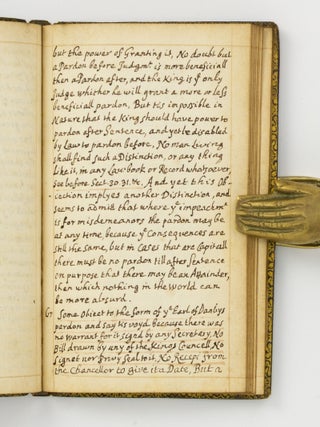 but the power of Granting it, No doubt but
a Pardon before Judgmt. is more beneficiall
then a Pardon after, and the King is ye only
Judge whither he will grant a more or less
beneficiall pardon, But tis impossible in
Nature that the King should have power to
pardon after Sentence, and yet be disabled
by Law to pardon before. No man Living
shall find such a Distinction, or any thing
like it, in any Law book or Record whatsoever,
see before Sect: 30 31. &c. And yet this Ob=
=iection implyes another Distinction, and
seems to admit that where ye impeachmt.
is for misdemeanors the pardon may be
at any time, because ye Consequences are
still the same, but in Cases that are Capitall
there must be no pardon till after Sentence
on purpose that there may be an Attainder,
then which nothing in the World can
be more absurd.
Some Object to the form of ye Earl of Danbys
pardon and say tis voyd because there was
no warrant for it signed by any Secretary, No
Bill drawn by any of the Kings Councell, No
signet nor Privy Seal to it, No Recepi from
the Chancellor to give it a Date, But a